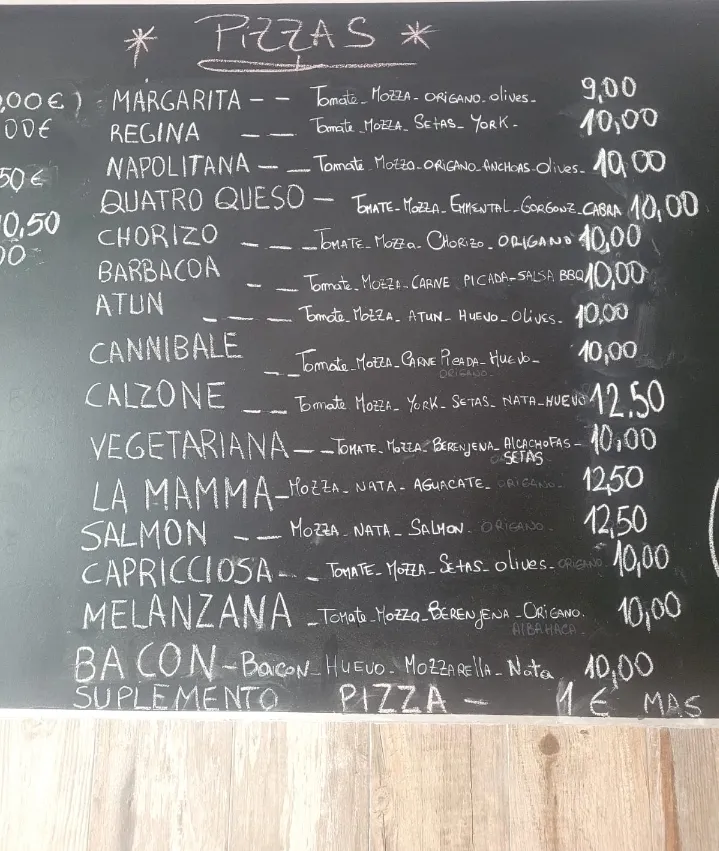 * PIZZAS *
,00€) MARGARITA -- Tomate_Mozza_ORIGANO_olives_ 9,00
00€ REGINA -- Tomate_Mozza_SETAS_YORK_ 10,00
NAPOLITANA -- Tomate_Mozza_ORIGANO_ANCHOAS_Olives_ 10,00
50€ QUATRO QUESO - TOMATE_Mozza_EMMENTAL_GORGONZ_CABRA 10,00
0,50 CHORIZO --- TOMATE_Mozza_CHORIZO_ORIGANO 10,00
00 BARBACOA -- Tomate_Mozza_CARNE PICADA-SALSA BBQ 10,00
ATUN --- Tomate_Mozza_ATUN-HUEVO-Olives_ 10,00
CANNIBALE -- Tomate_Mozza_CARNE Picada_HUEVO_ 10,00
ORIGANO
CALZONE -- Tomate_Mozza_YORK_SETAS_NATA_HUEVO 12.50
VEGETARIANA -- TOMATE_Mozza_BERENJENA_ALCACHOFAS- 10,00
SETAS
LA MAMMA - MOZZA_NATA-AGUACATE_ORIGANO_ 12,50
SALMON -- MOZZA_NATA_SALMON_ORIGANO_ 12,50
CAPRICCIOSA -- TOMATE_Mozza_SETAS_olives_ORIGANO_ 10,00
MELANZANA - Tomate_Mozza_BERENJENA_ORIGANO_ 10,00
ALBAHACA_
BACON - Bacon_HUEVO_MOZZARElla_Nata 10,00
SUPLEMENTO PIZZA - 1€ MAS